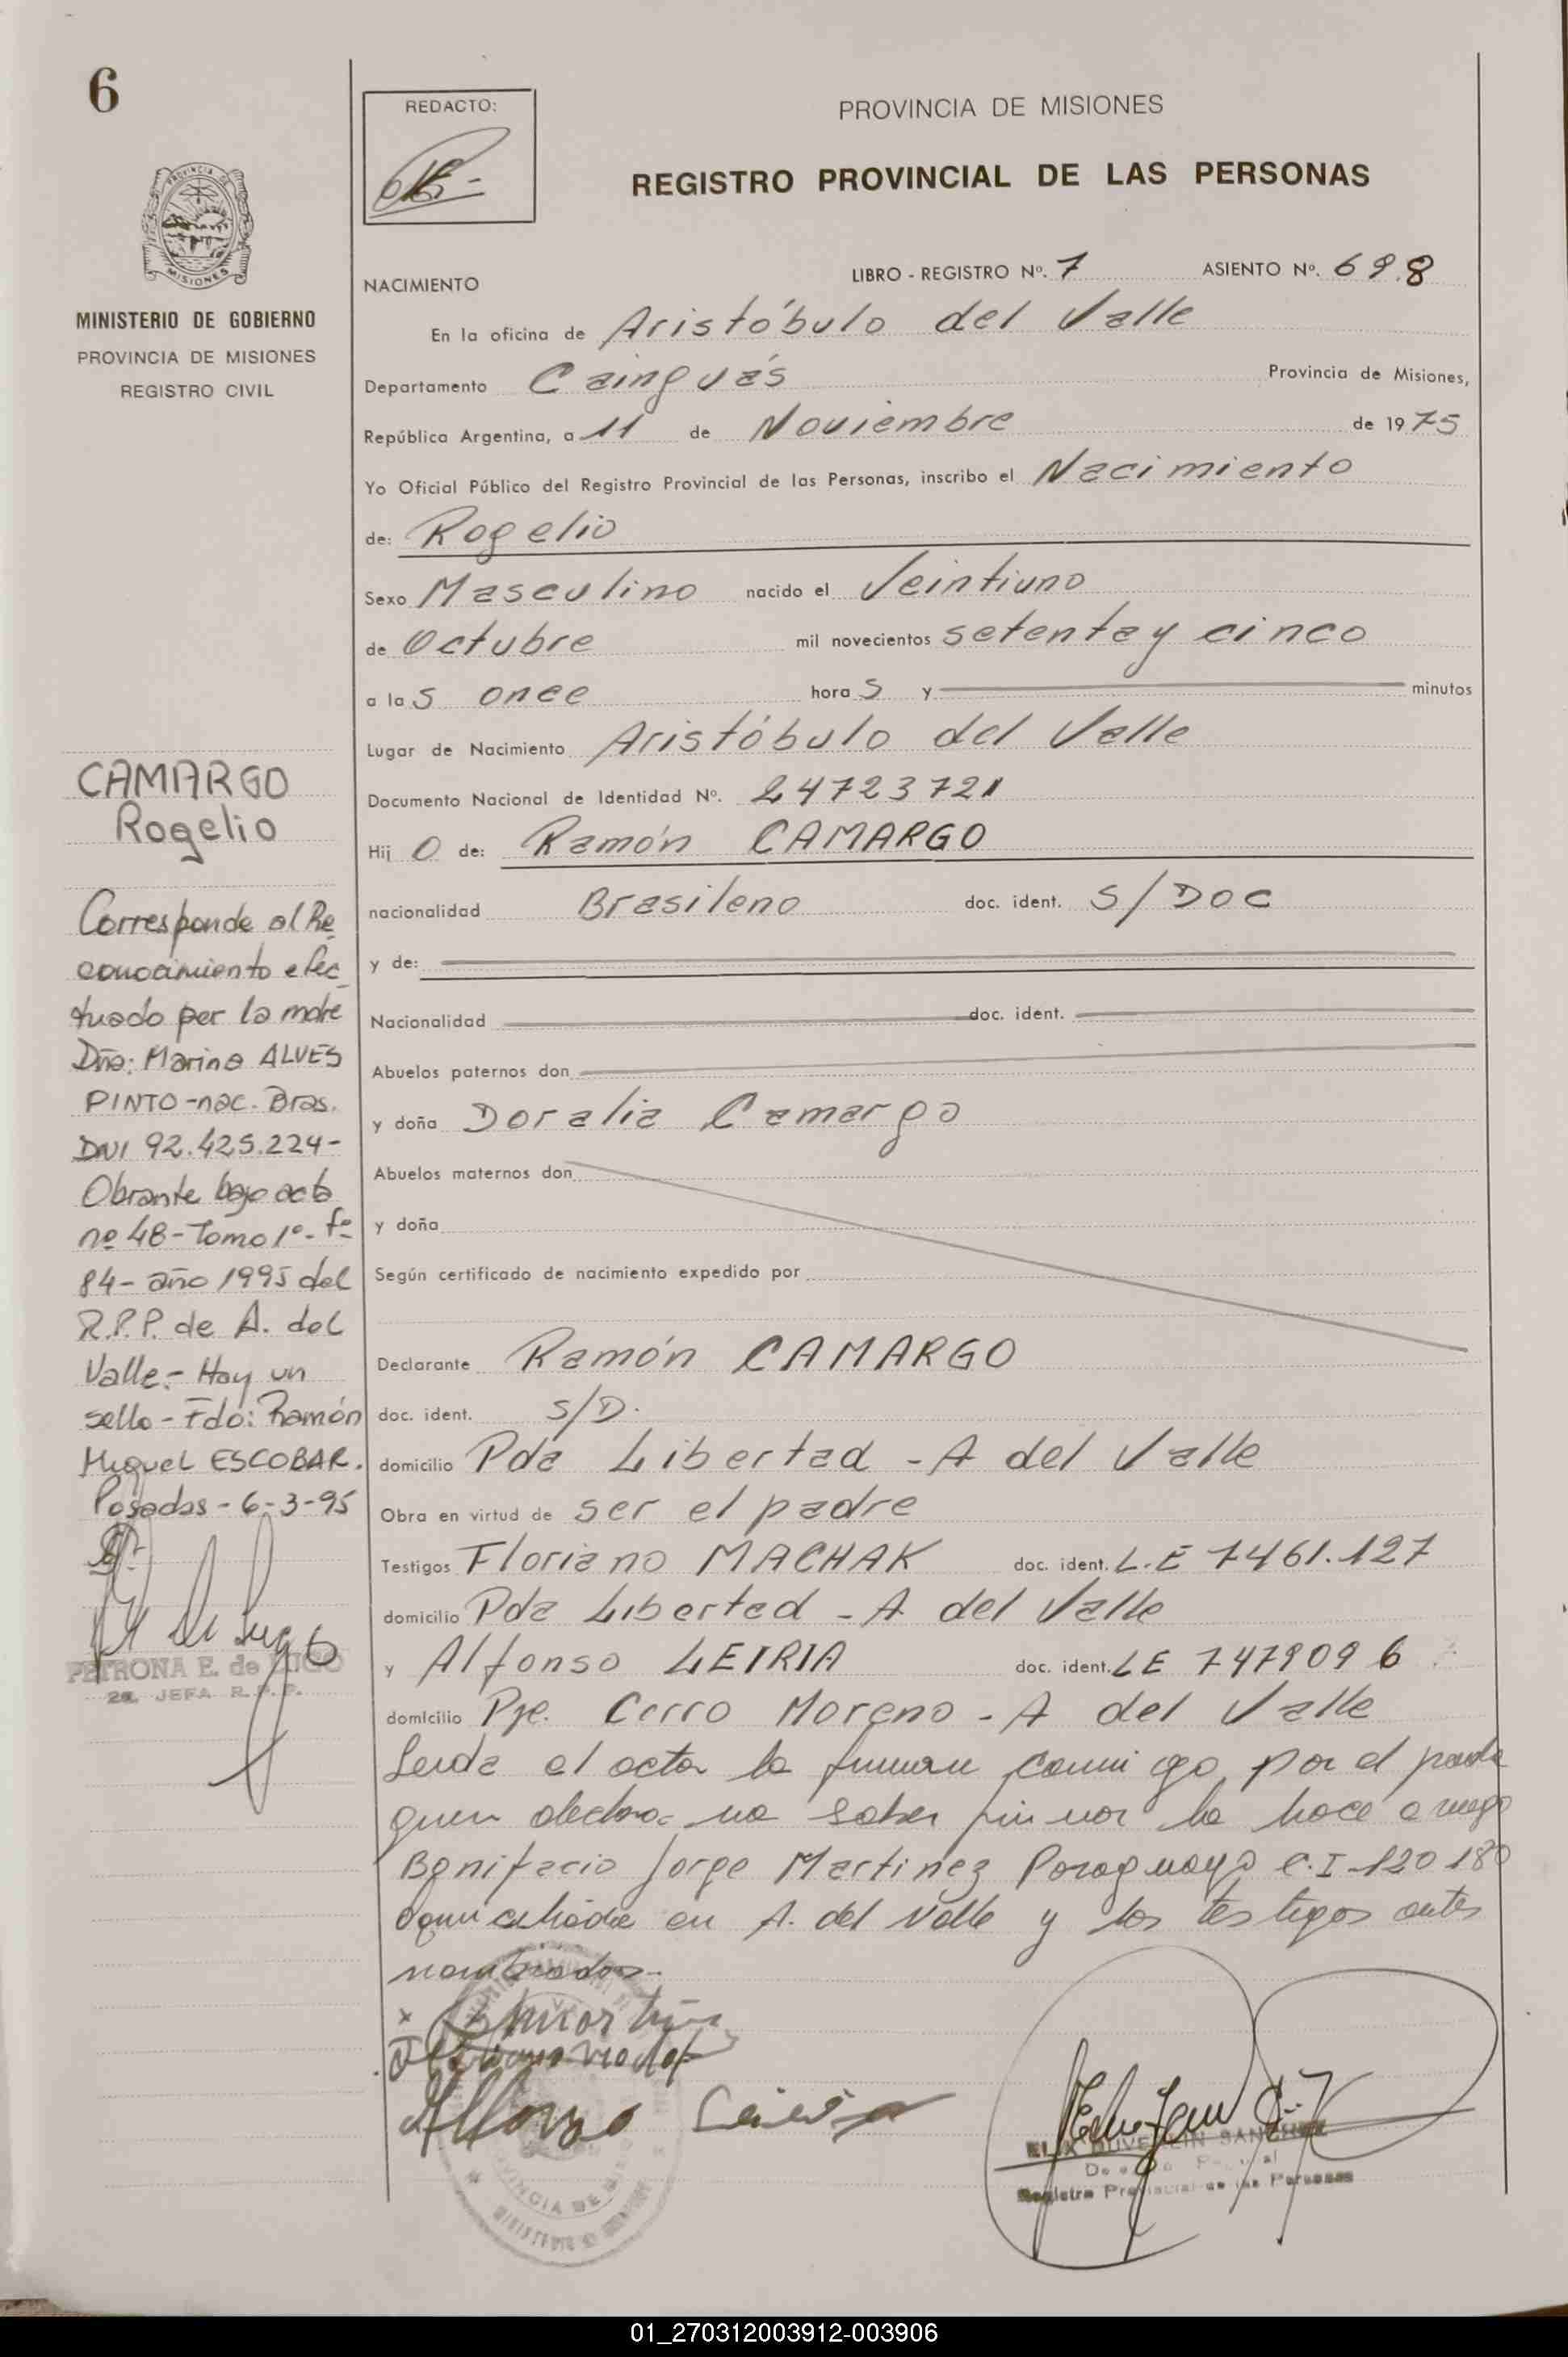 6
REDACTO:
PROVINCIA DE MISIONES
REGISTRO PROVINCIAL DE LAS PERSONAS
MISIONES
MINISTERIO DE GOBIERNO
PROVINCIA DE MISIONES
REGISTRO CIVIL
NACIMIENTO
LIBRO - REGISTRO Nº. 7 ASIENTO Nº. 698
En la oficina de Aristóbulo del Valle
Departamento Cainguás Provincia de Misiones,
República Argentina, a 11 de Noviembre de 1975
Yo Oficial Público del Registro Provincial de las Personas, inscribo el Nacimiento
de: Rogelio
Sexo Masculino nacido el Veintiuno
de Octubre mil novecientos setenta y cinco
a las once horas y minutos
Lugar de Nacimiento Aristóbulo del Valle
Documento Nacional de Identidad Nº. 24723721
Hijo de: Ramón CAMARGO
nacionalidad Brasileno doc. ident. S/DOC
y de:
Nacionalidad doc. ident.
Abuelos paternos don
y doña Doralia Camargo
Abuelos maternos don
y doña
Según certificado de nacimiento expedido por
Declarante Ramón CAMARGO
doc. ident. S/D.
domicilio Pda Libertad - A del Valle
Obra en virtud de ser el padre
Testigos Floriano MACHAK doc. ident. L.E 7461.127
domicilio Pda Libertad - A del Valle
y Alfonso LEIRIA doc. ident. LE 7479096
domicilio Pje. Cerro Moreno - A del Valle
Leida el acta la firman conmigo, por el padre
quien declara no saber firmar lo hace a ruego
Bonifacio Jorge Martinez Paraguayo C.I-120180
domiciliado en A. del Valle y los testigos antes
nombrados-
Alfonso Leiria
SANCHEZ
Registro Provincial de las Personas
CAMARGO
Rogelio
Corresponde al Re
conocimiento efec
tuado por la madre
Dña: Marina ALVES
PINTO - nac. Bras.
DNI 92.425.224-
Obrante bajo acta
nº 48 - Tomo 1º - fº
84 - año 1995 del
R.P.P. de A. del
Valle.- Hay un
sello - Fdo: Ramón
Miguel ESCOBAR.
Posadas - 6-3-95
PETRONA E. de LUGO
JEFA R.P.P.
01_270312003912-003906